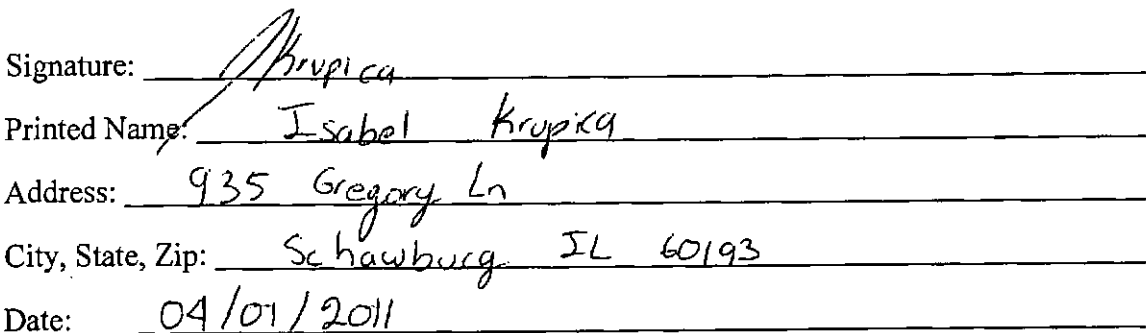 Signature: Krupica
Printed Name: Isabel Krupica
Address: 935 Gregory Ln
City, State, Zip: Schawburg IL 60193
Date: 04/01/2011